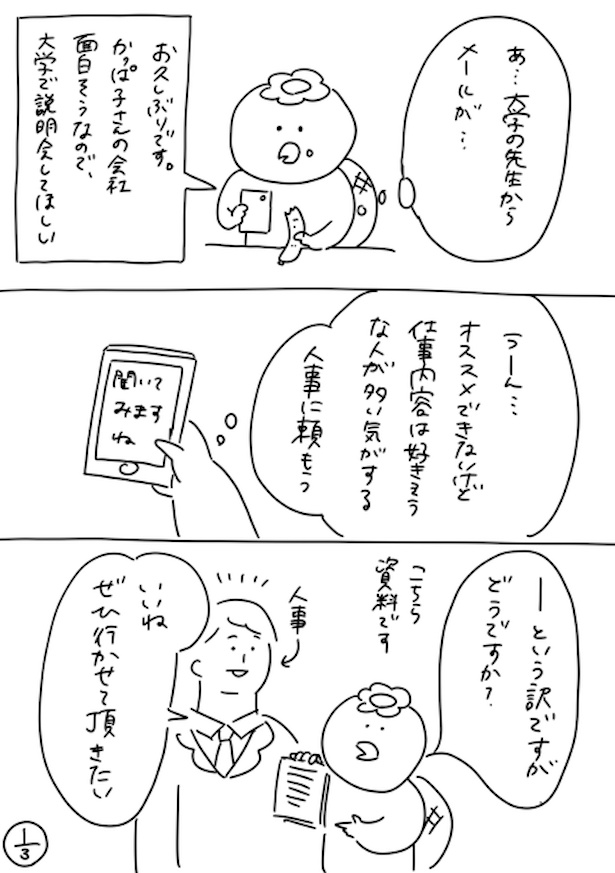 あ…大学の先生から
メールが…
お久しぶりです。
かっぱ子さんの会社
面白そうなので、
大学で説明会してほしい
うーん…
オススメできないけど
仕事内容は好きそう
な人が多い気がする
人事に頼もう
聞いて
みます
ね
―という訳ですが
どうですか?
こちら
資料です
人事
いいね
ぜひ行かせて頂きたい
1/3